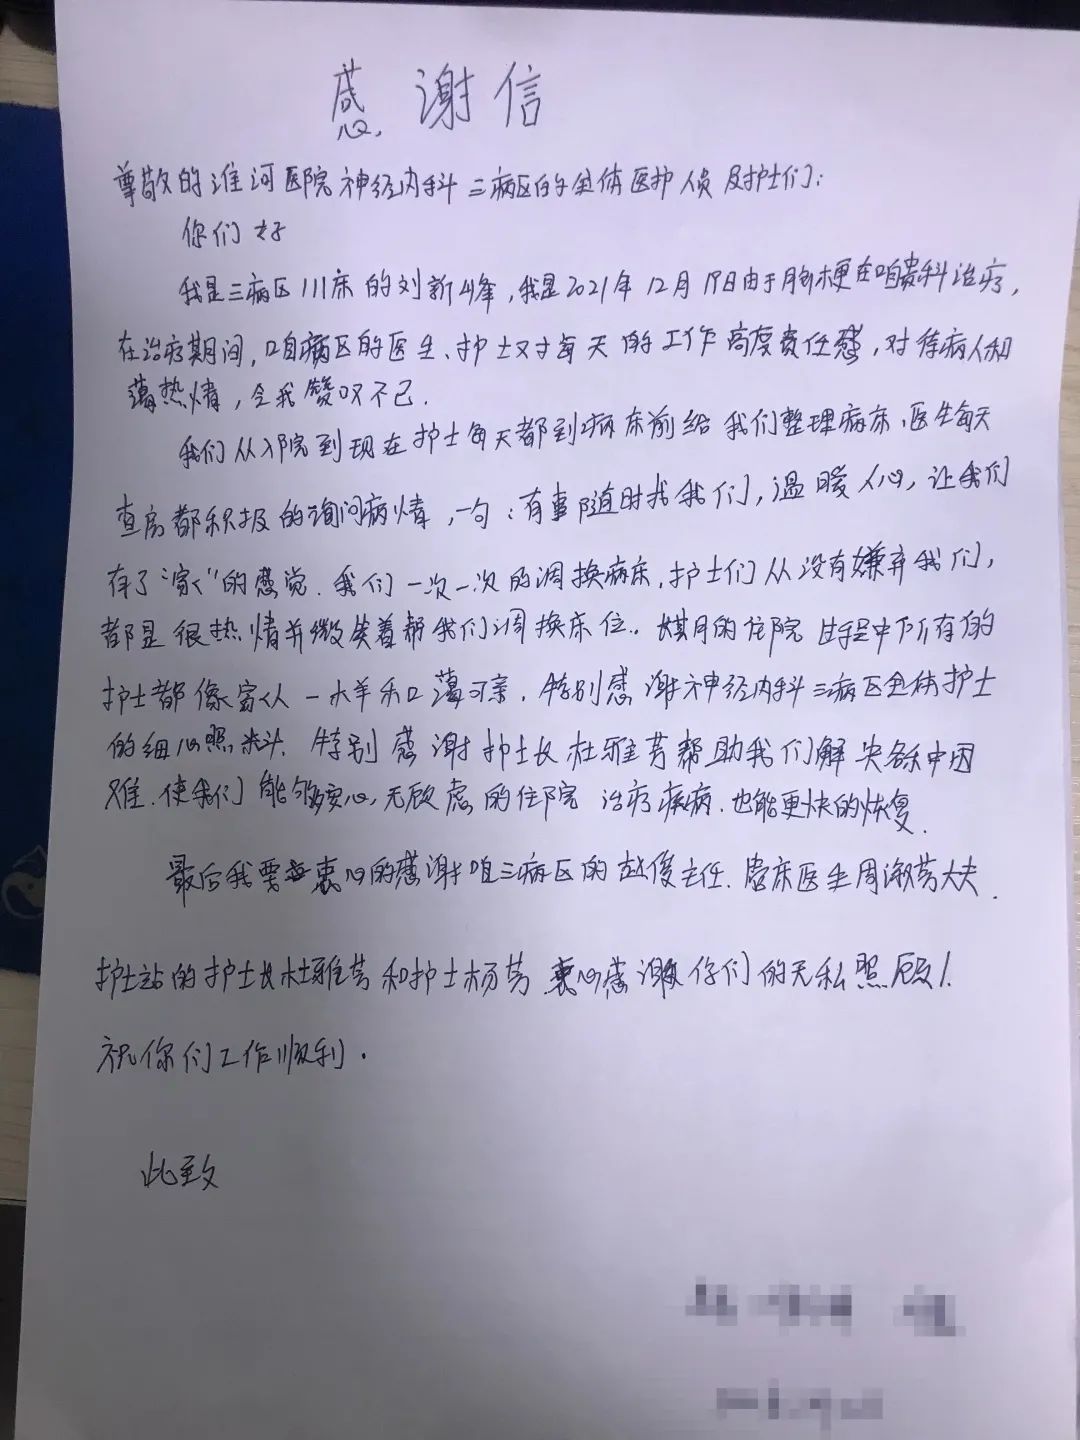 感谢信
尊敬的淮河医院神经内科三病区的全体医护人员及护士们：
你们好
我是三病区111床的刘新峰，我是2021年12月19日由于脑梗在咱贵科治疗，
在治疗期间，咱病区的医生、护士对每天的工作高度责任感，对待病人和
蔼热情，令我赞叹不已．
我们从入院到现在护士每天都到病床前给我们整理病床，医生每天
查房都积极的询问病情，一句：有事随时找我们，温暖人心，让我们
有了“家”的感觉．我们一次一次的调换病床，护士们从没有嫌弃我们，
都是很热情并微笑着帮我们调换床位．的住院过程中所有的
护士都像家人一样和蔼可亲．特别感谢神经内科三病区全体护士
的细心照料．特别感谢护士长杜雅芳帮助我们解决各种困
难．使我们能够安心，无顾虑的住院治疗疾病．也能更快的恢复．
最后我要衷心的感谢咱三病区的赵俊主任．管床医生周淑芳大夫．
护士站的护士长杜雅芳和护士杨芳衷心感谢你们的无私照顾！
祝你们工作顺利．
此致